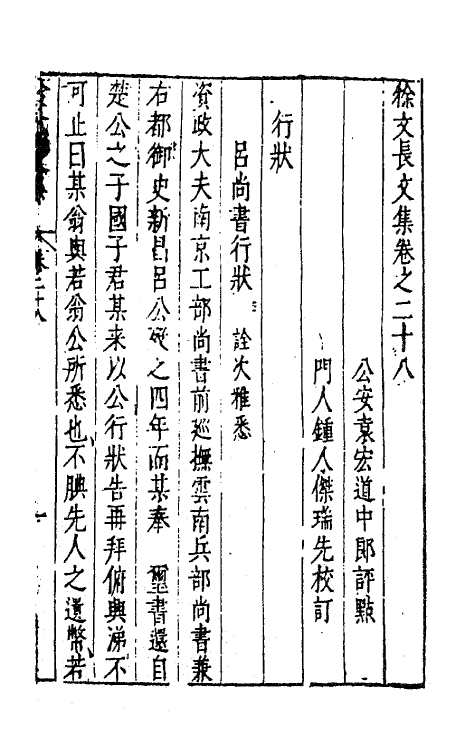 徐文長文集卷之二十八
公安袁宏道中郎評點
門人鍾人傑瑞先校訂
行狀
呂尚書行狀 詮次雅悉
資政大夫南京工部尚書前廵撫雲南兵部尚書兼
右都御史新昌呂公歿之四年而某奉 璽書還自
楚公之子國子君某来以公行狀告再拜俯興涕不
可止曰某翁與若翁公所悉也不腆先人之遺幣若
卷二十八
一